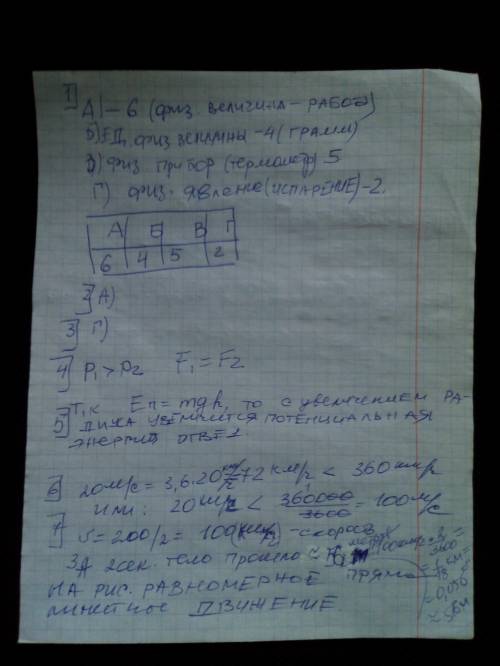 1 А) – 6 (физ. величина – РАБОТА)
Б) ЕД. физ величины – 4 (ГРАММ)
В) физ прибор (термометр) 5
Г) физ. явление (ИСПАРЕНИЕ) – 2.
А Б В Г
6 4 5 2
2 А)
3 Г)
4 P₁ > P₂ F₁ = F₂
Т.к Eп = mgh, то с увеличением РА-
5 ДИУСА увеличится ПОТЕНЦИАЛЬНАЯ
ЭНЕРГИЯ ОТВЕТ
6 20 м/с = 3,6·20 72 км/ч < 360 км/ч
или: 20 м/с < 360000/3600 = 100 м/с
7 υ = 200/2 = 100 – скорость
ЗА 2 сек. тело прошло ≈
НА РИС. РАВНОМЕРНОЕ ПРЯМО
линейное ДВИЖЕНИЕ
≈ 0,056
≈ 56 м